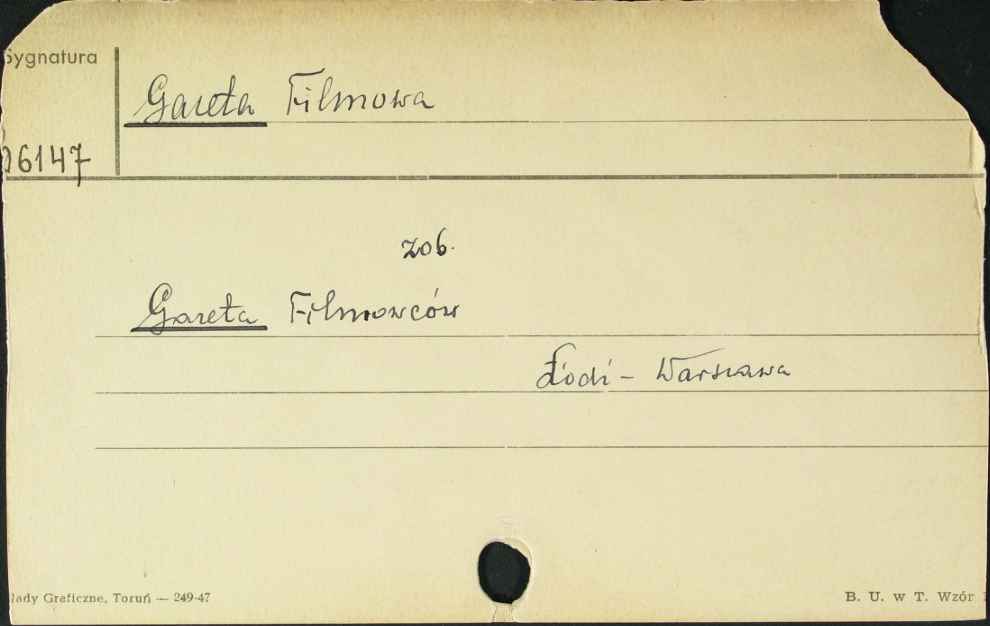 Sygnatura
Gazeta Filmowa
06147
zob.
Gazeta Filmowców
Łódź - Warszawa
łady Graficzne, Toruń — 249-47
B. U. w T. Wzór